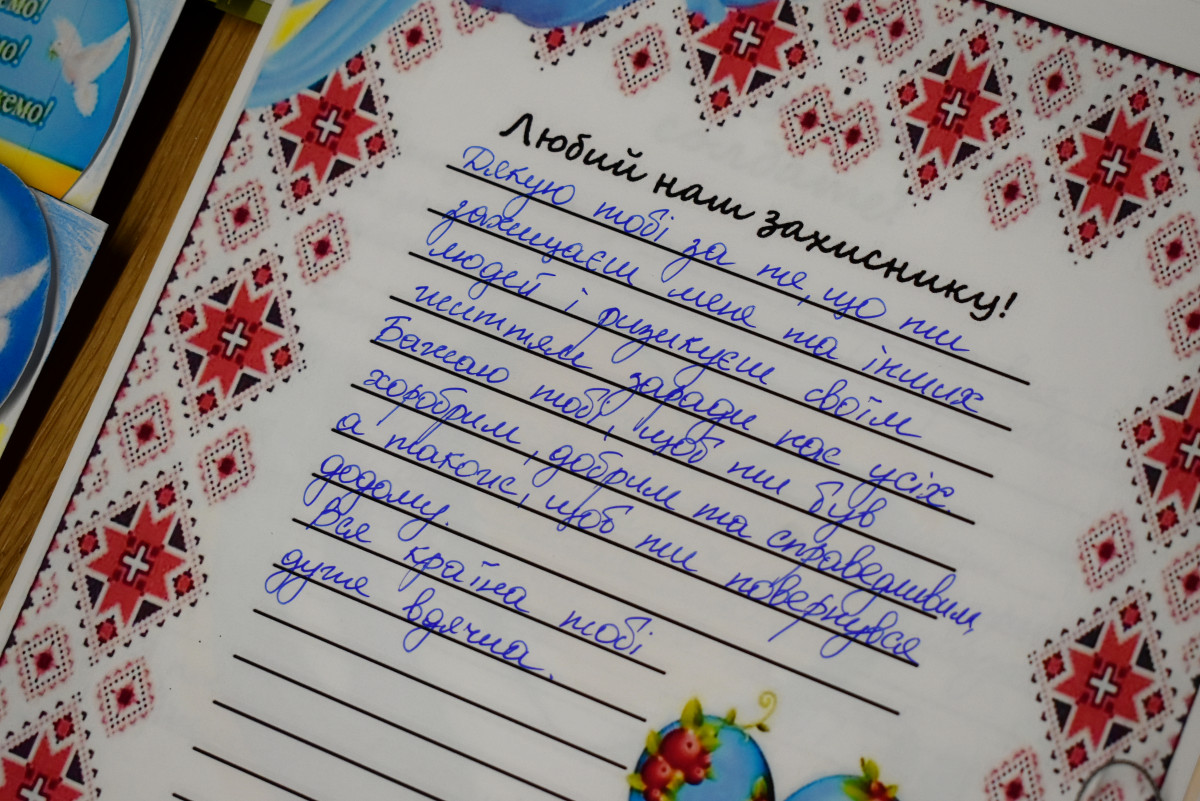 ємо!
мо!
жемо!
Любий наш захиснику!
Дякую тобі за те, що ти
захищаєш мене та інших
людей і ризикуєш своїм
життям заради нас усіх.
Бажаю тобі, щоб ти був
хоробрим, добрим та справедливим,
а також, щоб ти повернувся
додому.
Вся країна тобі
дуже вдячна.